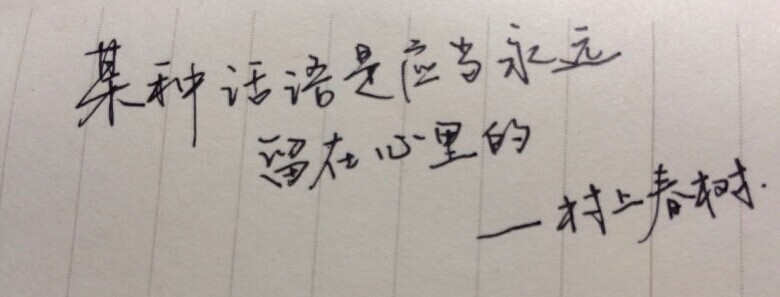 某种话语是应当永远
留在心里的
—村上春树.